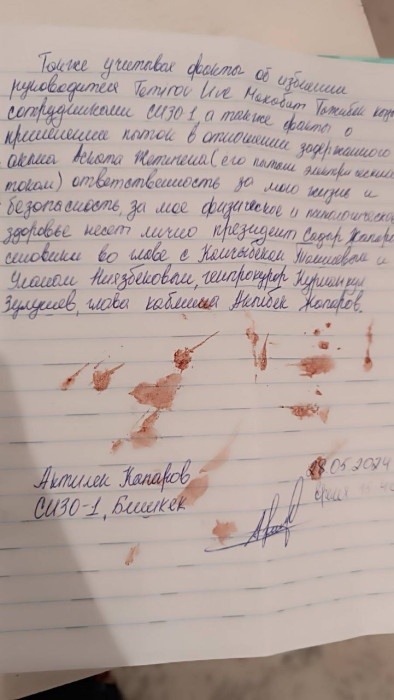 Также учитывая факты об избиении
руководителя Temirov Live Махабат Тажибек кызы
сотрудниками СИЗО 1, а также факты о
применение пыток в отношении задержанного
акына Аската Жетигена (его пытали электрическим
током) ответственность за мою жизнь и
безопасность, за мое физическое и психологическое
здоровье несет лично президент Садыр Жапаров
силовики во главе с Камчыбеком Ташиевым и
Уланом Ниязбековым, генпрокурор Курманкул
Зулушев, глава кабмина Акылбек Жапаров.
Актилек Капаров
СИЗО-1, Бишкек
28.05.2024